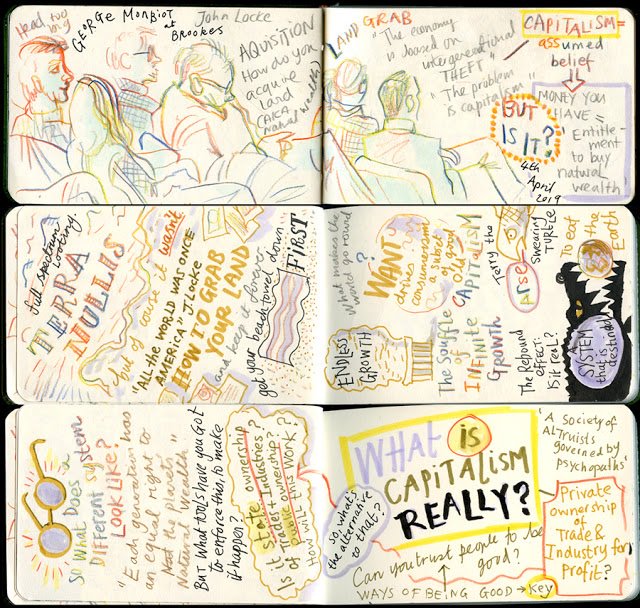 Head too big
GEORGE MONBIOT
at
BROOKES
John Locke
AQUISITION
How do you
acquire
land
(AKA
natural wealth)
LAND GRAB
"The economy
is based on
intergenerational
THEFT" /
"The problem
is capitalism"
BUT
IS IT?
4th
April
2019
CAPITALISM =
assumed
belief
MONEY YOU
HAVE =
Entitle-
ment
to buy
natural
wealth
full spectrum
looting.
TERRA
NULLIS
but of course it wasn't
"ALL THE WORLD WAS ONCE
AMERICA" J Locke
HOW TO GRAB
YOUR LAND
and keep it forever.
get your beach towel down
FIRST
What makes the
world go round
?
WANT
drives
consumerism
a subset
of good
old
CAPITALISM
ENDLESS
GROWTH
The Souffle
of
INFINITE
Growth
Terry the
Swearing
TURTLE
Arse
The Rebound
EFFECT:
IS it real?
To eat
the
Earth
A
SYSTEM
that is
destroying
So What Does a
Different System
LOOK LIKE?
"Each generation has
an equal right to
the planets
Natural Wealth"
BUT What tools have you got
to enforce this, to make
it happen?
Is it state ownership
of Trade + Industries?
Is it public ownership?
HOW WILL THIS WORK?
So what's
the alternative
to that?
WHAT IS
CAPITALISM
REALLY?
Can you trust people to be
good?
WAYS OF BEING GOOD → Key
'A Society of
ALTruists
governed by
PSYCHOPATHS'
Private
ownership
of
Trade &
Industry for
Profit?